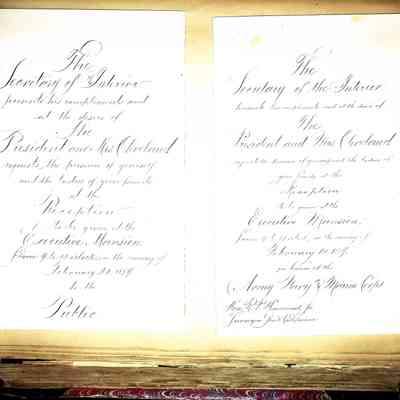 The
Secretary of Interior
presents his compliments and
at the desire of
The
President and Mrs Cleveland
requests the presence of yourself
and the ladies of your family
at the
Reception
to be given at the
Executive Mansion.
From 9 to 11 o'clock on the evening of
February
to the
Public
The
Secretary of the Interior
presents his compliments and at the desire of
The
President and Mrs Cleveland
request the pleasure of yourself and the ladies of
your family at the
Reception
to be given at the
Executive Mansion.
From 9 to 11 o'clock, on the evening of
February
in honor of the
Army Navy & Marine Corps